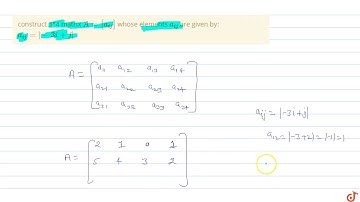 construct 3×4 matrix A = [aij] whose elements aij are given by:
aij = |-3i + j|
A = [a11 a12 a13 a14
a21 a22 a23 a24
a31 a32 a33 a34]
aij = |-3i+j|
a12 = |-3+2| = |-1| = 1
A = [2 1 0 1
5 4 3 2]